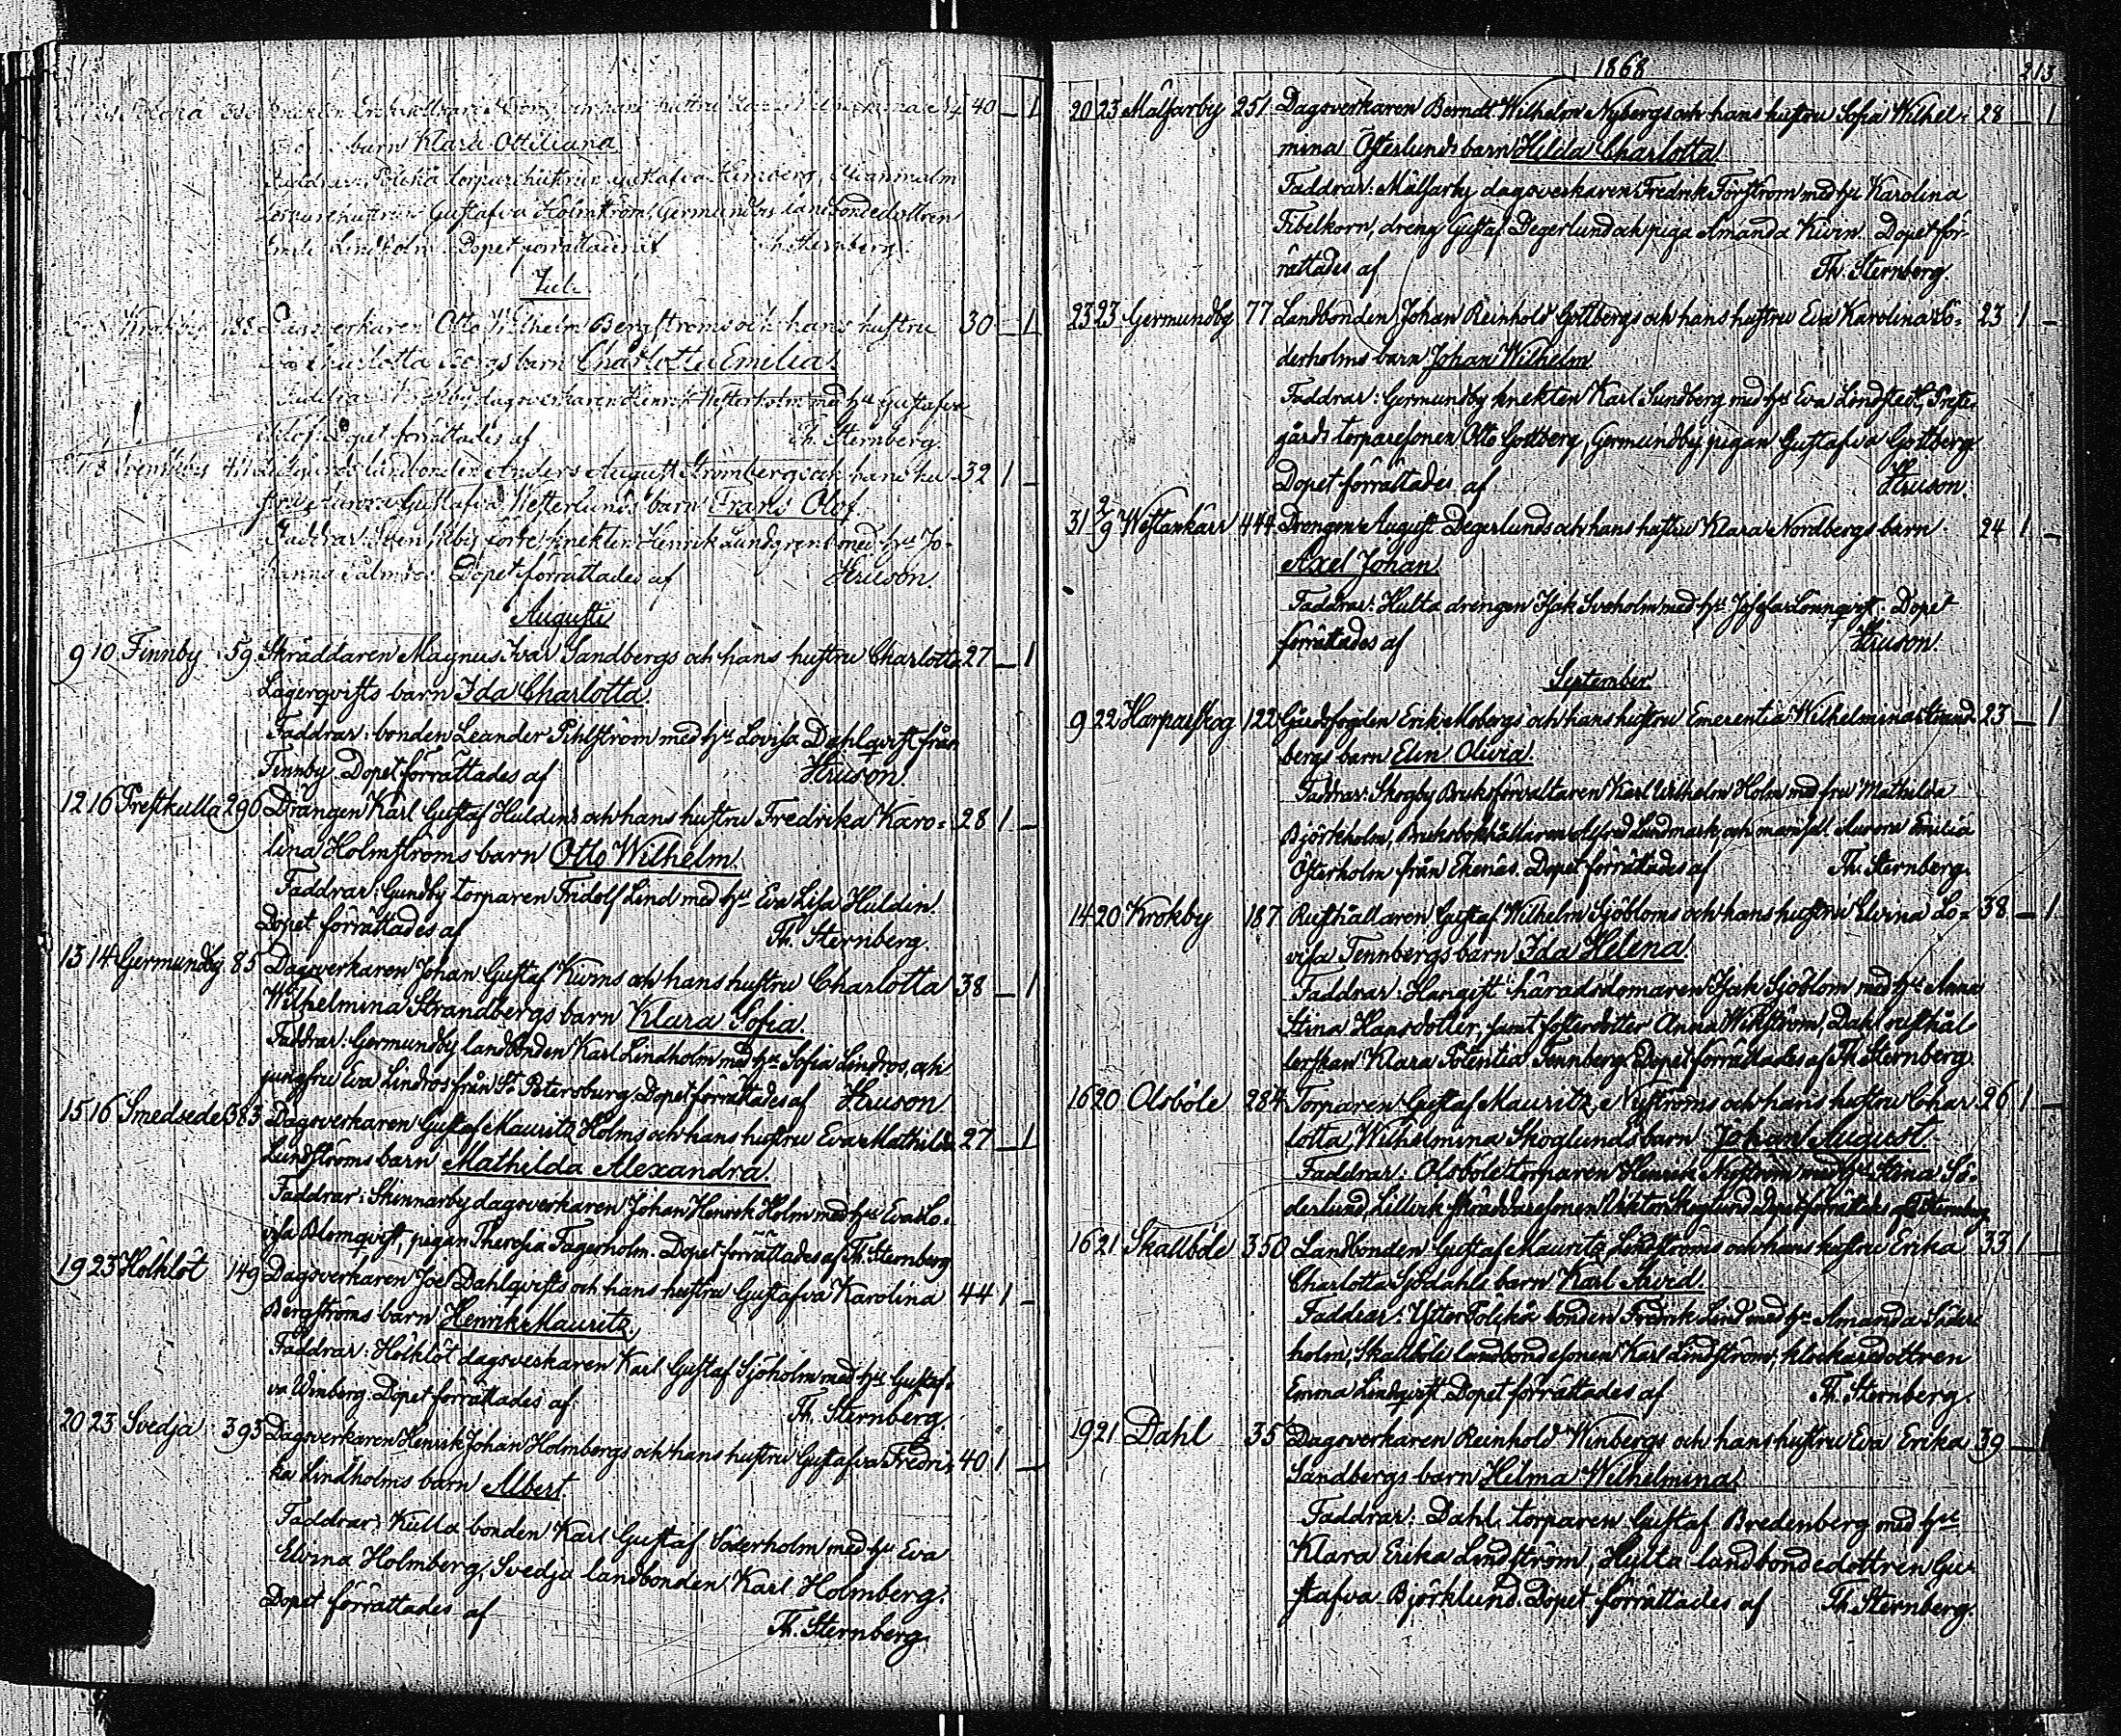 barn Klara Ottiliana
torparehustrun Gustafva
Gustafva Holmström, Germundby landbondedottren
Lindholm. Dopet förrättades af Th. Sternberg.
Juli
Krokby 188 Dagsverkaren Otto Wilhelm Bergströms och hans hustru 30 – 1
Charlotta Bergs barn Charlotta Emilia.
Faddrar: Krokby dagsverkaren Henrik Westerholm med h:u Gustafva
Dopet förrättades af Th. Sternberg.
landbonden Anders August Strömbergs och hans hu- 32 1 –
stru Aurora Gustafva Westerlunds barn Frans Olof.
Faddrar: Svenskby knekten Henrik Lundgren med h:u Jo-
hanna Palmros. Dopet förrättades af Hruson.
Augusti
9 10 Finnby 59 Skräddaren Magnus Ivar Sandbergs och hans hustru Charlotta 27 – 1
Lagerqvists barn Ida Charlotta.
Faddrar: bonden Leander Pihlström med h:u Lovisa Dahlqvist från
Finnby. Dopet förrättades af Hruson.
12 16 Prestkulla 296 Drängen Karl Gustaf Huldins och hans hustru Fredrika Karo- 28 1 –
lina Holmströms barn Otto Wilhelm.
Faddrar: Gundby torparen Fridolf Lind med h:u Eva Lisa Huldin.
Dopet förrättades af Th. Sternberg.
13 14 Germundby 85 Dagsverkaren Johan Gustaf Kivins och hans hustru Charlotta 38 – 1
Wilhelmina Strandbergs barn Klara Sofia.
Faddrar: Germundby landbonden Karl Lindholm med h:u Sofia Lindros, och
jungfru Eva Lindros från S:t Petersburg. Dopet förrättades af Hruson
15 16 Smedsede 383 Dagsverkaren Gustaf Mauritz Holms och hans hustru Eva Mathilda 27 – 1
Lundströms barn Mathilda Alexandra.
Faddrar: Skinnarby dagsverkaren Johan Henrik Holm med h:u Eva Lo-
visa Blomqvist, pigan Theresia Fagerholm. Dopet förrättades af Th. Sternberg
19 23 Hölklöt 149 Dagsverkaren Joel Dahlqvists och hans hustru Gustafva Karolina 44 1 –
Bergströms barn Henrik Mauritz.
Faddrar: Hölklöt dagsverkaren Karl Gustaf Sjöholm med h:u Gustaf-
va Winberg. Dopet förrättades af Th. Sternberg.
20 23 Svedja 393 Dagsverkaren Henrik Johan Holmbergs och hans hustru Gustafva Fredri- 40 1 –
ka Lindholms barn Albert.
Faddrar: Kulla bonden Karl Gustaf Söderholm med h:u Eva
Elvina Holmberg, Svedja landbonden Karl Holmberg.
Dopet förrättades af Th. Sternberg.
1868 213
20 23 Mälsarby 251 Dagsverkaren Berndt Wilhelm Nybergs och hans hustru Sofia Wilhel- 28 – 1
mina Österlunds barn Hilda Charlotta.
Faddrar: Mälsarby dagsverkaren Fredrik Forsström med h:u Karolina
Fibelkorn, dreng Gustaf Degerlund och piga Amanda Kivin. Dopet för-
rättades af Th. Sternberg.
23 23 Germundby 77 Landbonden Johan Reinhold Gottbergs och hans hustru Eva Karolina Sö- 23 1 –
derholms barn Johan Wilhelm
Faddrar: Germundby knekten Karl Sundberg med h:u Eva Lindstedt, Preste-
gårds torparesonen Otto Gottberg, Germundby pigan Gustafva Gottberg
Dopet förrättades af Hruson.
31 2/9 Westankärr 444 Drengen August Degerlunds och hans hustru Klara Nordbergs barn 24 1 –
Axel Johan
Faddrar: Hulta drengen Isak Sveholm med h:u Josefa Lönnqvist. Dopet
förrättades af Hruson.
September
9 22 Harparskog 122 Gårdsfogden Erik Mobergs och hans hustru Emerentia Wilhelmina Strand- 23 – 1
bergs barn Elin Olivia.
Faddrar: Skogby Bruksförvaltaren Karl Wilhelm Holm med fru Mathilda
Björkholm, Bruksbokhållaren Alfred Lundmark, och mamsell Aurora Emilia
Österholm från Ekenäs. Dopet förrättades af Th. Sternberg.
14 20 Krokby 187 Rusthållaren Gustaf Wilhelm Sjöbloms och hans hustru Elvina Lo- 38 – 1
visa Tennbergs barn Ida Helena.
Faddrar: Hangist häradsdomaren Isak Sjöblom med h:u Anna
Stina Hansdotter, samt fosterdotter Anna Wikström, Dahl rusthål-
lerskan Klara Potentia Tennberg. Dopet förrättades af Th. Sternberg
16 20 Olsböle 284 Torparen Gustaf Mauritz Nyströms och hans hustru Char- 26 1 –
lotta Wilhelmina Skoglunds barn Johan August.
Faddrar: Olsböle torparen Henrik Nyström med h:u Stina Sö-
derlund, Lillvik skräddaresonen Viktor Skoglund. Dopet förrättades af Th. Sternberg
16 21 Skallböle 350 Landbonden Gustaf Mauritz Lindströms och hans hustru Erika 33 1 –
Charlotta Sjödahls barn Karl Arvid.
Faddrar: Ytter Bölskä bonden Fredrik Lind med h:u Amanda Söder-
holm, Skallböle landbondesonen Karl Lindström, klockaredottren
Emma Lindqvist. Dopet förrättades af Th. Sternberg.
19 21 Dahl 35 Dagsverkaren Reinhold Winbergs och hans hustru Eva Erika 39 – 1
Sandbergs barn Hilma Wilhelmina.
Faddrar: Dahl torparen Gustaf Bredenberg med h:u
Klara Erika Lindström, Hylta landbondedottren Gu-
stafva Björklund. Dopet förrättades af Th. Sternberg.